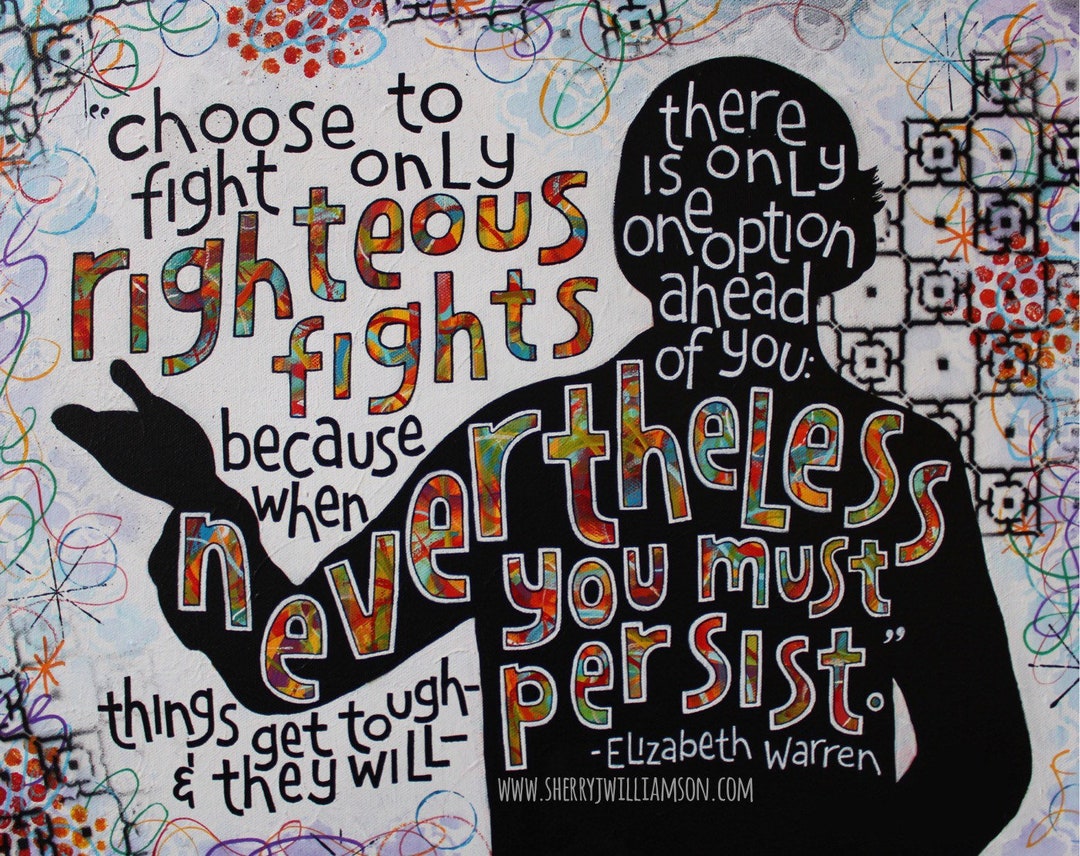 "choose to
fight only
righteous
fights
because
when
things get tough-
& they will-
there
is only
one option
ahead
of you:
nevertheless
you must
persist."
-Elizabeth Warren
www.sherryjwilliamson.com